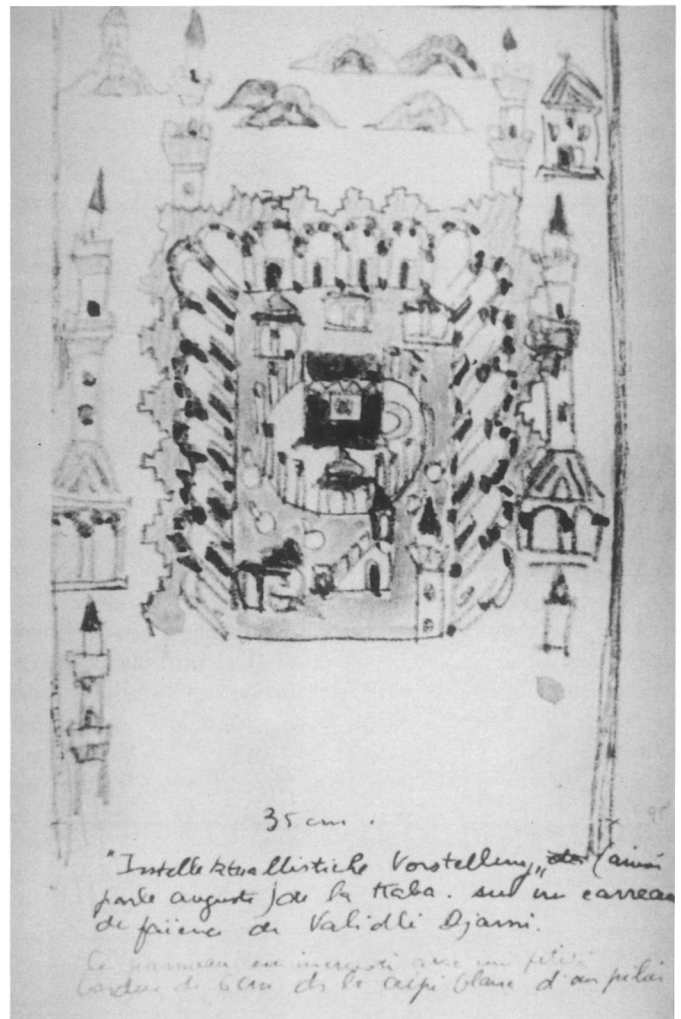 35 cm.
"Intellektuallistiche Vorstellung„ (ainsi
parle auguste) de la Kaba. sur un carreau
de faïence de Validlé Djami.
Ce panneau est incrusté avec une petite
bordure de 6 cm ds le crépi blanc d'un pilier